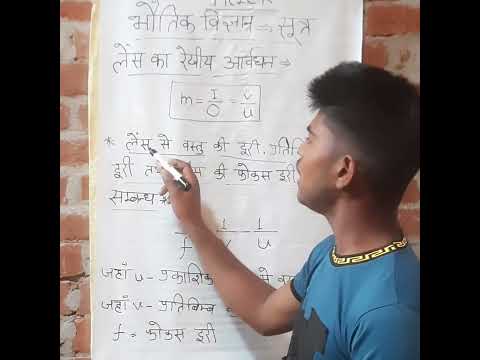 भौतिक विज्ञान ⇒ सूत्र
लेंस का रेखीय आवर्धन ⇒
m = I/O = v/u
* लेंस से वस्तु की दूरी,
दूरी की फोकस दूरी
सम्बन्ध
1/f 1/v 1/u
जहाँ u - प्रकाशिक से
जहाँ v - प्रतिबिम्ब
f = फोकस दूरी